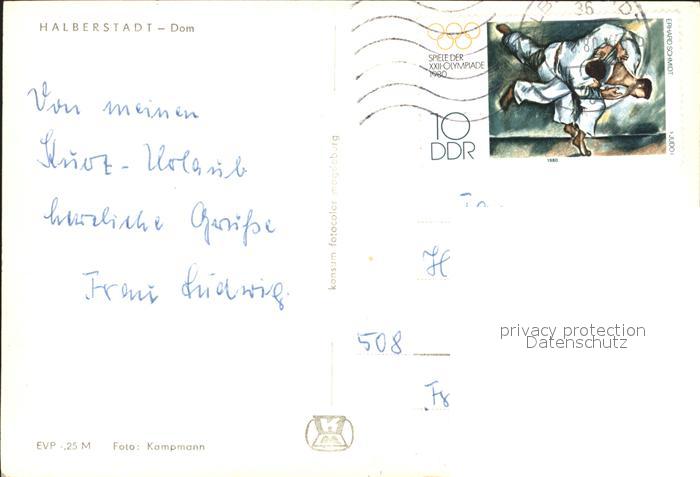 HALBERSTADT – Dom
SPIELE DER
XXII. OLYMPIADE
1980
10
DDR
ERHARD SCHMIDT
»JUDO«
1980
36
80
Von meinen
Kurz-Urlaub
herzliche Grüße
Frau Ludwig.
konsum fotocolor magdeburg
H
508
Fr
privacy protection
Datenschutz
EVP -,25 M Foto: Kampmann